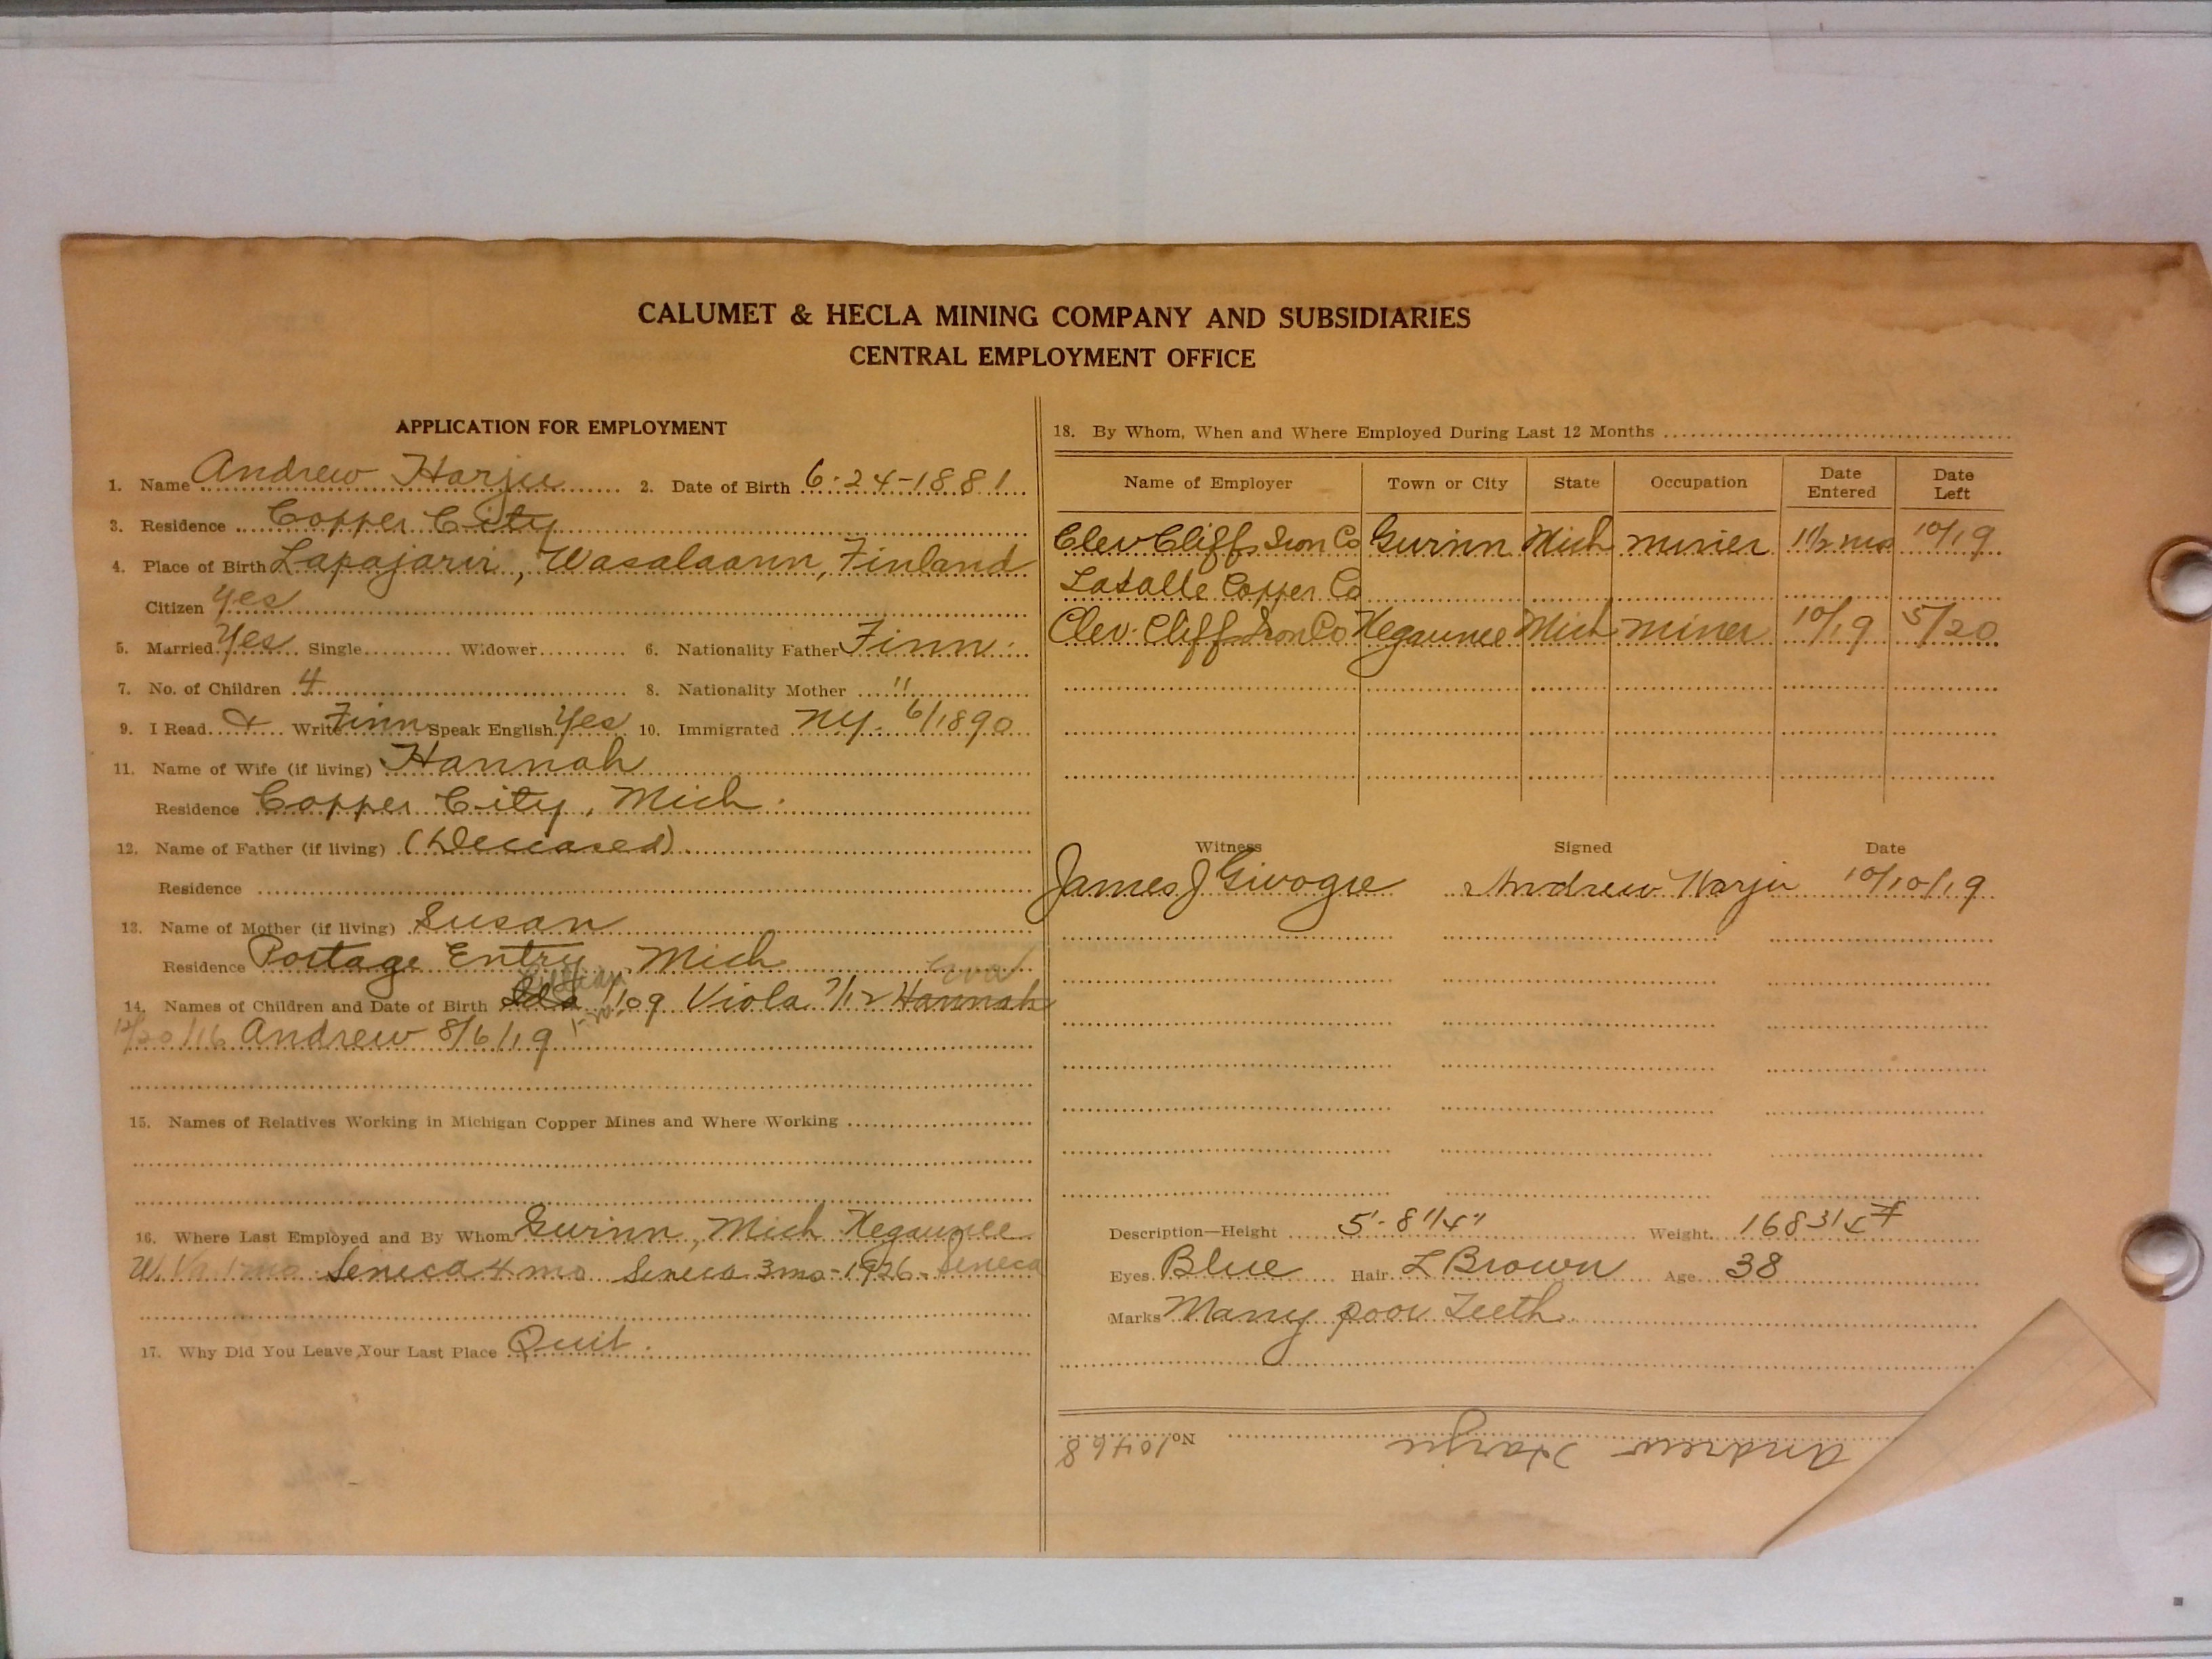 CALUMET & HECLA MINING COMPANY AND SUBSIDIARIES
CENTRAL EMPLOYMENT OFFICE
APPLICATION FOR EMPLOYMENT
1. Name Andrew Harju 2. Date of Birth 6-24-1881
3. Residence Copper City
4. Place of Birth Lapajarvi, Wasalaann, Finland
Citizen Yes
5. Married Yes Single Widower 6. Nationality Father Finn
7. No. of Children 4 8. Nationality Mother "
9. I Read & Write Finn Speak English Yes 10. Immigrated NY. 6/1890
11. Name of Wife (if living) Hannah
Residence Copper City, Mich
12. Name of Father (if living) (Deceased)
Residence
13. Name of Mother (if living) Susan
Residence Portage Entry, Mich
14. Names of Children and Date of Birth Lillian 1/09 Viola 7/12 Hannah
12/20/16 Andrew 8/6/19
15. Names of Relatives Working in Michigan Copper Mines and Where Working
16. Where Last Employed and By Whom Gwinn, Mich Negaunee
Seneca 4 mo Seneca 3 mo - 1926 - Seneca
17. Why Did You Leave Your Last Place Quit.
18. By Whom, When and Where Employed During Last 12 Months
Name of Employer Town or City State Occupation Date Entered Date Left
Clev Cliffs Iron Co Gwinn Mich miner 1 1/2 mo 10/19
LaSalle Copper Co
Clev. Cliffs Iron Co Negaunee Mich miner 10/19 5/20
Witness Signed Date
James J Andrew Harju 10/10/19
Description—Height 5'-8 1/4" Weight 168 3/4 #
Eyes Blue Hair L Brown Age 38
Marks Many poor Teeth
No. 10468 Andrew Harju